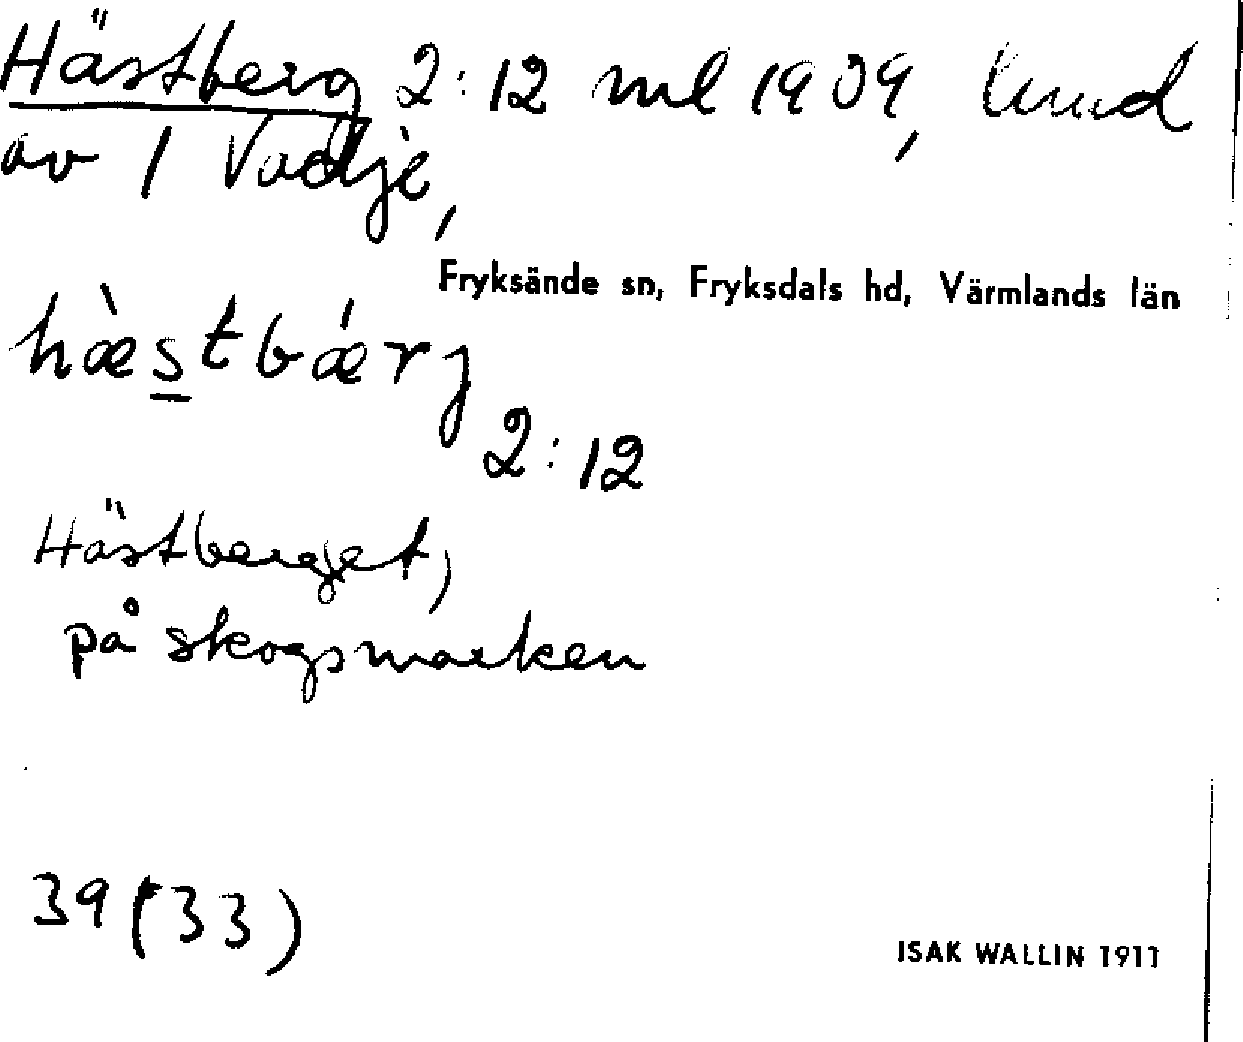 Hästberg 2:12 ml 1909, lund
av 1 Vadje,
Fryksände sn, Fryksdals hd, Värmlands län
hæ̀stbǽrj
2:12
Hästberget,
på skogsmarken
39 (33)
ISAK WALLIN 1911